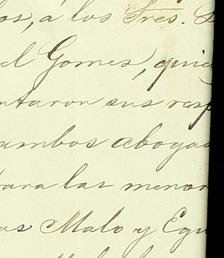 os, á los Tres. S
el Gomes, quie
ntaron sus resp
ambos aboga
para las menor
as Malo y Egu